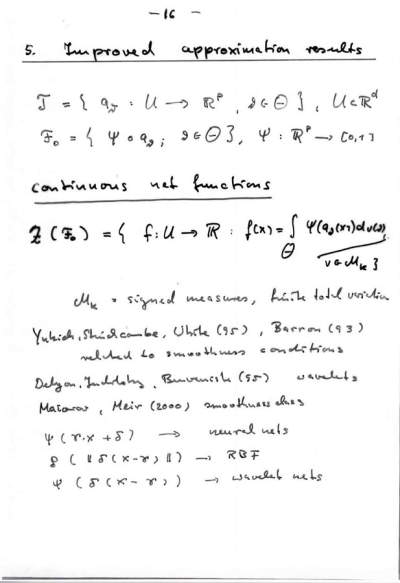 - 16 -
5. Improved approximation results
T = { a_ϑ : U → ℝ^p, ϑ ∈ Θ }, U ⊂ ℝ^d
F_0 = { Ψ ∘ a_ϑ ; ϑ ∈ Θ }, Ψ : ℝ^p → [0,1]
continuous net functions
(F_0) = { f : U → ℝ : f(x) = ∫_Θ Ψ(a_ϑ(x)) dν(ϑ),
ν ∈ M_k }
M_k = signed measures, finite total variation
Yukich, Stinchcombe, White (95), Barron (93)
related to smoothness conditions
Delyon, Juditsky, Benveniste (95) wavelets
Maiorov, Meir (2000) smoothness class
Ψ(γ·x + δ) → neural nets
(‖δ(x-γ)‖) → RBF
Ψ(δ(x-γ)) → wavelet nets